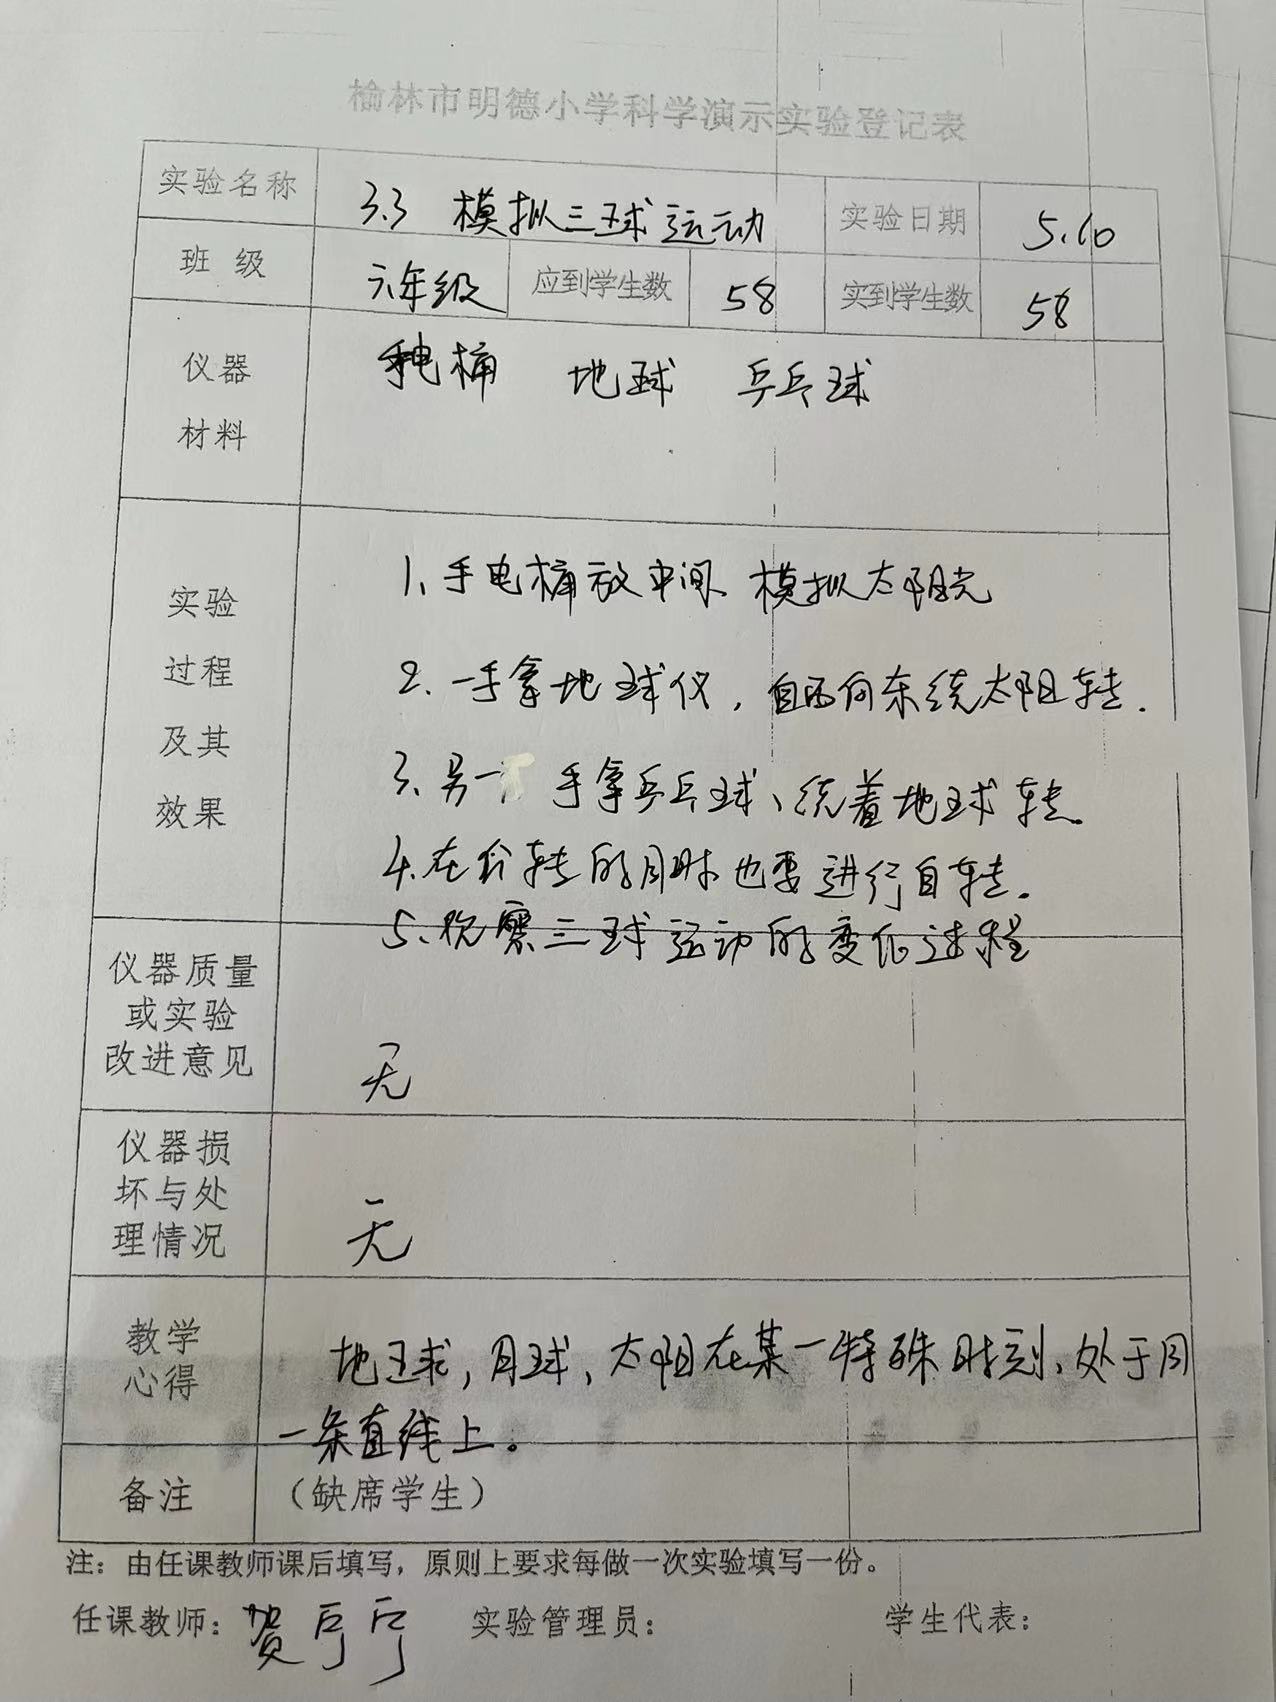 榆林市明德小学科学演示实验登记表
实验名称 3.3 模拟三球运动 实验日期 5.10
班 级 六年级 应到学生数 58 实到学生数 58
仪器 手电桶 地球 乒乓球
材料
1、手电桶放中间 模拟太阳光
实验
2、一手拿地球仪，自西向东绕太阳转.
过程
及其
3、另一 手拿乒乓球、绕着地球转.
效果
4.在公转的同时也要进行自转.
5、观察三球运动的变化过程
仪器质量
或实验
改进意见 无
仪器损
坏与处
理情况 无
教学 地球,月球,太阳在某一特殊时刻、处于同
心得
一条直线上。
备注 （缺席学生）
注：由任课教师课后填写，原则上要求每做一次实验填写一份。
任课教师：贺 实验管理员： 学生代表：